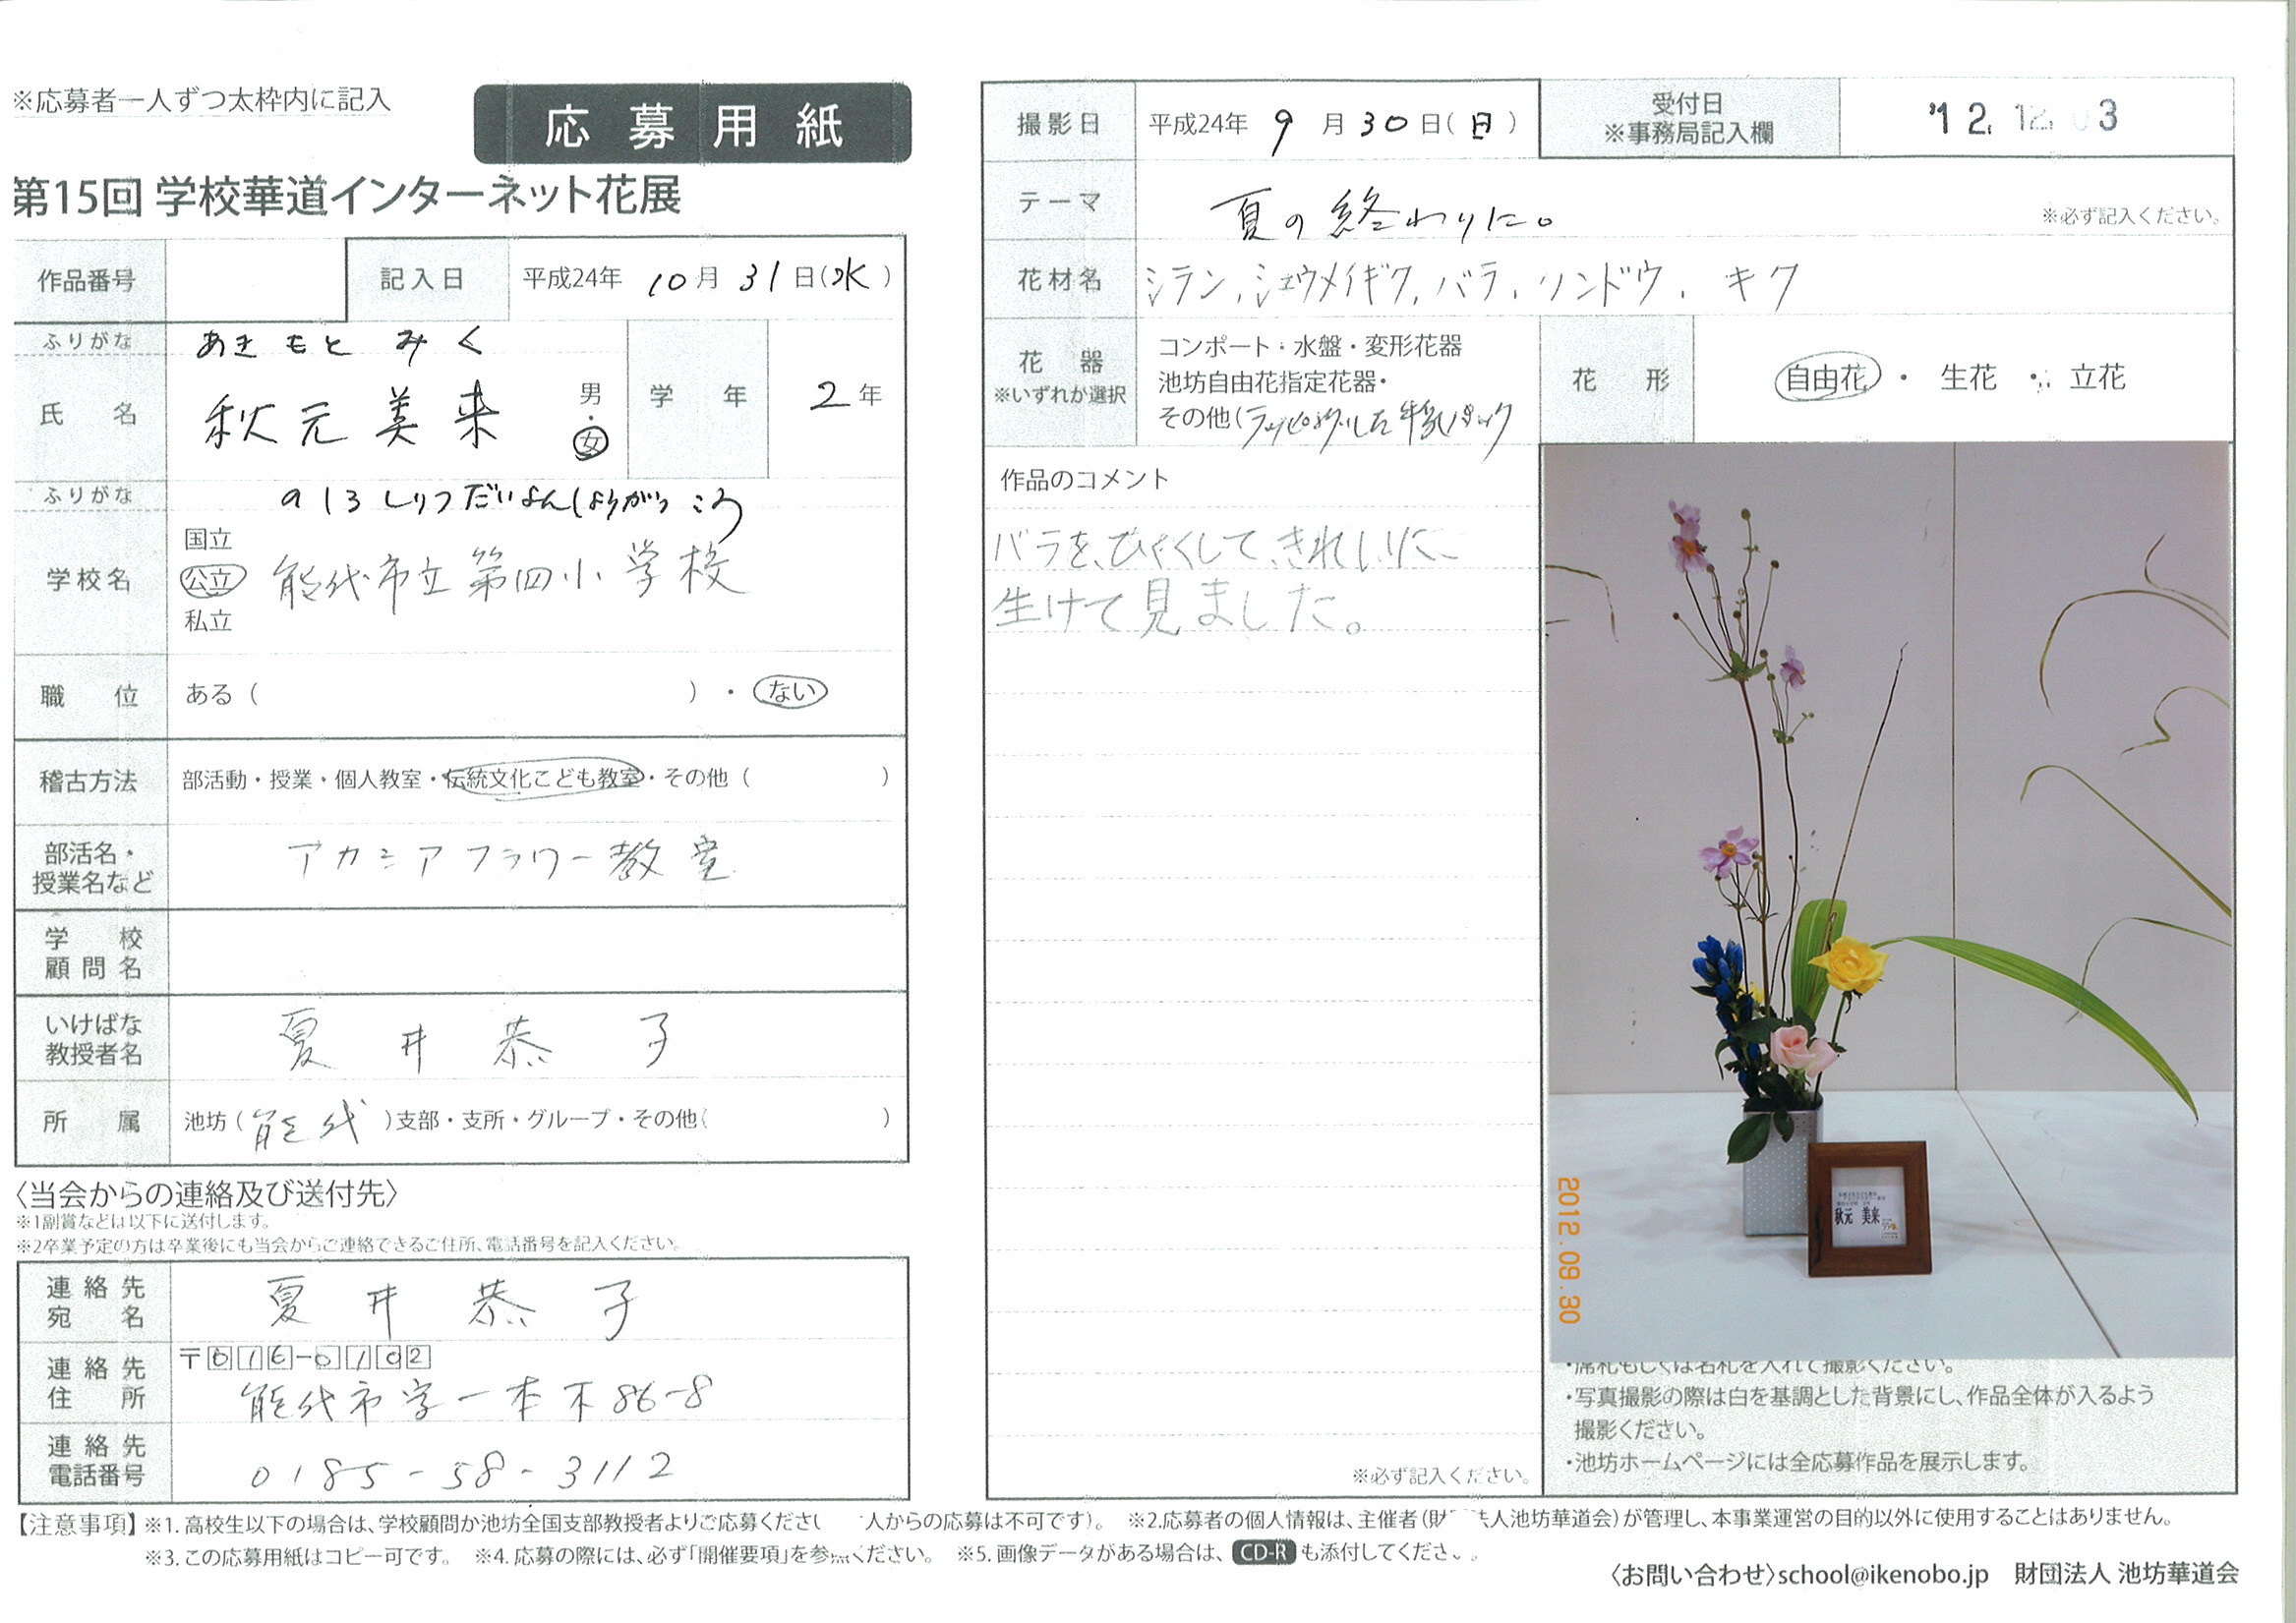 ※応募者一人ずつ太枠内に記入
応募用紙
第15回 学校華道インターネット花展
作品番号
記入日 平成24年 10月 31日(水)
ふりがな あきもと みく
氏名 秋元美来 男・女
学年 2年
ふりがな のしろしりつだいよんしょうがっこう
学校名 国立 公立 私立 能代市立第四小学校
職位 ある( )・ない
稽古方法 部活動・授業・個人教室・伝統文化こども教室・その他( )
部活名・授業名など アカシアフラワー教室
学校顧問名
いけばな教授者名 夏井恭子
所属 池坊(能代)支部・支所・グループ・その他( )
〈当会からの連絡及び送付先〉
※1副賞などは以下に送付します。
※2卒業予定の方は卒業後にも当会からご連絡できるご住所、電話番号を記入ください。
連絡先宛名 夏井恭子
連絡先住所 〒016-0102
能代市字一本木86-8
連絡先電話番号 0185-58-3112
撮影日 平成24年 9月 30日(日)
受付日 ※事務局記入欄 '12.12.03
テーマ 夏の終わりに。 ※必ず記入ください。
花材名 シラン、シュウメイギク、バラ、リンドウ、キク
花器 ※いずれか選択
コンポート・水盤・変形花器
池坊自由花指定花器・
その他(ラッピングした牛乳パック
花形 自由花・生花・立花
作品のコメント
バラを、ひくくして、きれいに
生けて見ました。
※必ず記入ください。
秋元 美来
2012.09.30
・席札もしくは名札を入れて撮影ください。
・写真撮影の際は白を基調とした背景にし、作品全体が入るよう
撮影ください。
・池坊ホームページには全応募作品を展示します。
【注意事項】※1. 高校生以下の場合は、学校顧問か池坊全国支部教授者よりご応募くださ 人からの応募は不可です)。 ※2.応募者の個人情報は、主催者(財 人池坊華道会)が管理し、本事業運営の目的以外に使用することはありません。
※3. この応募用紙はコピー可です。 ※4. 応募の際には、必ず「開催要項」を参 ください。 ※5. 画像データがある場合は、CD-Rも添付してくださ
〈お問い合わせ〉school@ikenobo.jp 財団法人 池坊華道会